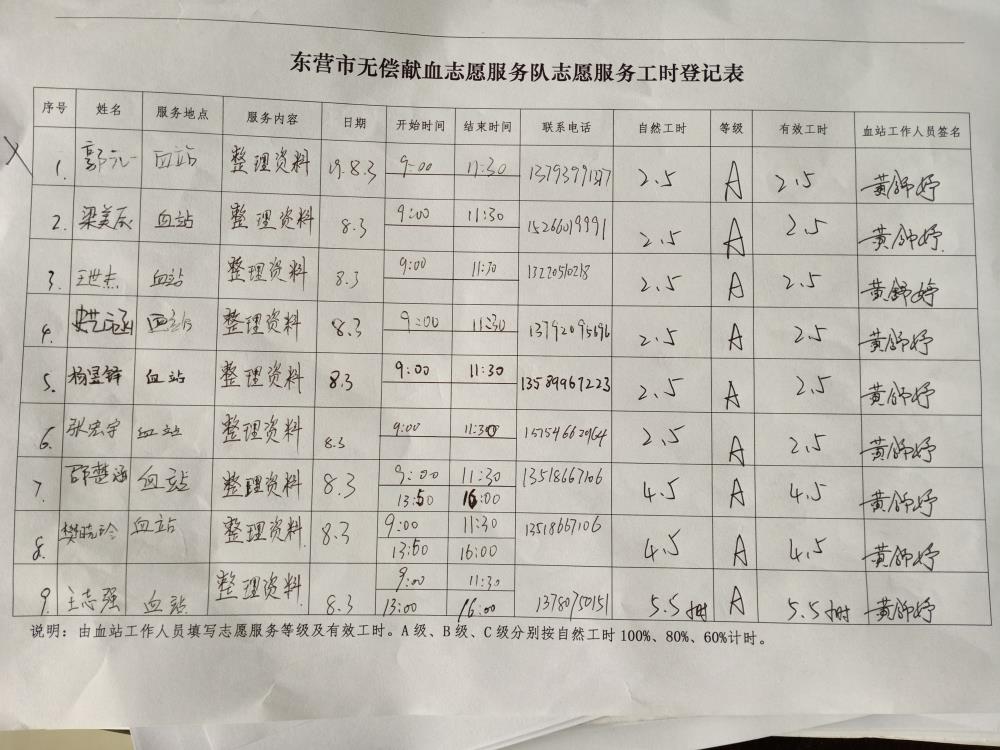 东营市无偿献血志愿服务队志愿服务工时登记表
序号 姓名 服务地点 服务内容 日期 开始时间 结束时间 联系电话 自然工时 等级 有效工时 血站工作人员签名
1. 郭 血站 整理资料 19.8.3 9:00 11:30 2.5 A 2.5 黄舒婷
2. 梁美辰 血站 整理资料 8.3 9:00 11:30 15266019991 2.5 A 2.5 黄舒婷
3. 王世杰 血站 整理资料 8.3 9:00 11:30 13220510218 2.5 A 2.5 黄舒婷
4. 血站 整理资料 8.3 9:00 11:30 13792095696 2.5 A 2.5 黄舒婷
5. 杨昱锋 血站 整理资料 8.3 9:00 11:30 13589967223 2.5 A 2.5 黄舒婷
6. 张宏宇 血站 整理资料 8.3 9:00 11:30 15754662964 2.5 A 2.5 黄舒婷
7. 邵楚涵 血站 整理资料 8.3 9:00 11:30 13518667106 4.5 A 4.5 黄舒婷
13:50 16:00
8. 樊晓玲 血站 整理资料 8.3 9:00 11:30 13518667106 4.5 A 4.5 黄舒婷
13:50 16:00
9. 王志强 血站 整理资料 8.3 9:00 11:30 13780750151 5.5时 A 5.5时 黄舒婷
13:00 16:00
说明：由血站工作人员填写志愿服务等级及有效工时。A级、B级、C级分别按自然工时100%、80%、60%计时。